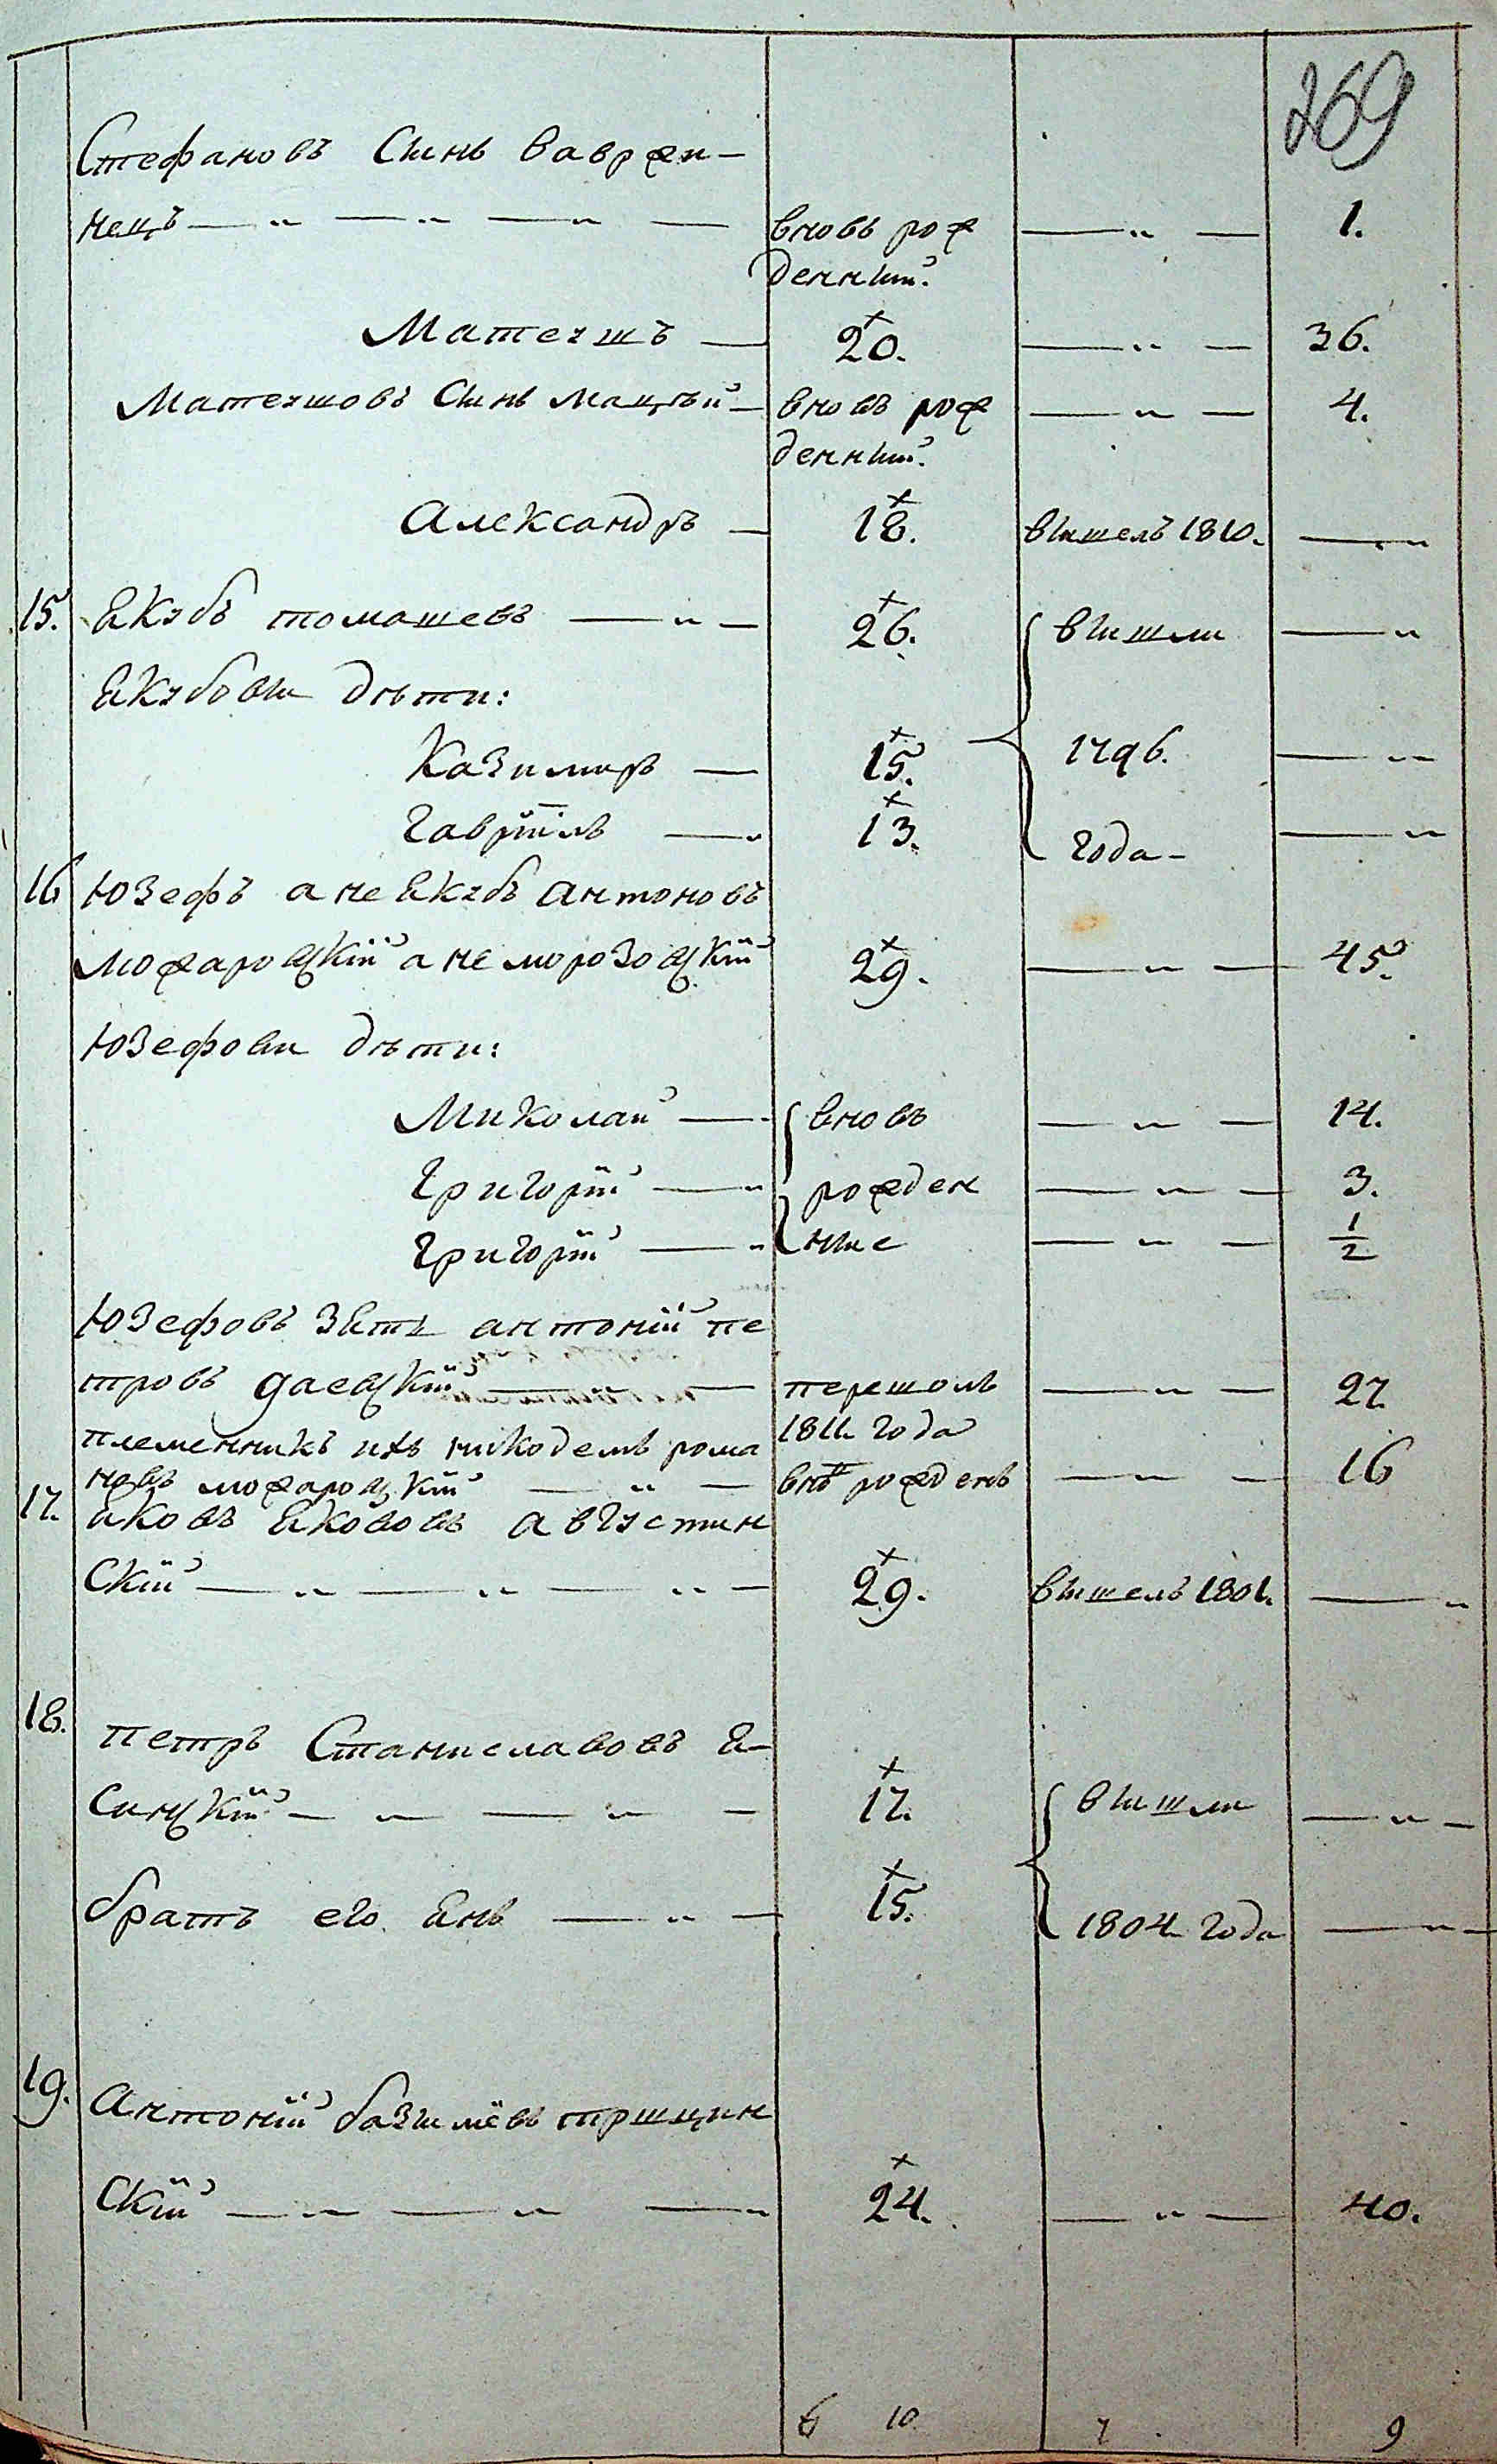 269
Стефановъ Сынъ Вавржи-
нецъ — „ — „ — „ — вновь рож — „ — 1.
денный.
Матеушъ — 20. — „ — 36.
Матеушовъ Сынъ Мацѣй — вновь рож — „ — 4.
денный.
Александръ — 18. вышелъ 1810. — „
15. Якубъ томашевъ — „ — 26. вышли — „
Якубовы дѣти:
Казимиръ — 15. 1796. — „
Гавріилъ — „ 13. года — „
16 Юзефъ а не Якубъ антоновъ
можаровскій а не морозовскій 29. — „ — 45.
Юзефовы дѣти:
Миколай — вновь — „ — 14.
Григорій — „ рожден — „ — 3.
Григорій — „ ные — „ — 1/2
Юзефовъ Зять антоній пе
тровъ даевскій — „ — перешолъ — „ — 27.
1811 года
племенникъ ихъ никодемъ рома
новъ можаровскій — „ — внѡ рожденъ — „ — 16
17. яковъ Якововъ августин
Скій — „ — „ — „ — 29. вышелъ 1801. — „
18. петръ Станиславовъ Я-
синскій — „ — „ — 17. вышли — „ —
братъ его Янъ — „ — 15. 1804 года — „ —
19. антоній базылёвъ трщцин
Скій — „ — „ — „ 24. — „ — 40.
6 10 7 9